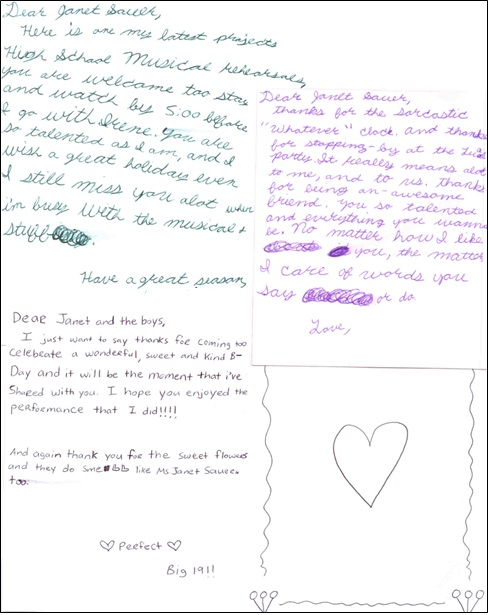 Dear Janet Sauer,
Here is one my latest projects
High School Musical rehearsals,
you are welcome too stay
and watch by 5:00 before
I go with Irene. You are
so talented as I am, and I
wish a great holiday even
I still miss you alot when
i'm busy with the musical +
stuff.
Have a great season,
Dear Janet Sauer,
thanks for the sarcastic
"Whatever" clock. and thanks
for stopping-by at the
party It really means alot
to me, and to us. thanks
for being an-awesome
friend. You so talented
and everything you wanna
be. No matter how I like
you, the matter
I care of words you
say or do.
Love,
Dear Janet and the boys,
I just want to say thanks for coming too
celebrate a wonderful, sweet and kind B-
Day and it will be the moment that i've
shared with you. I hope you enjoyed the
performance that I did!!!!
And again thank you for the sweet flowers
and they do like Ms Janet Sauer
too.
♡ Perfect ♡
Big 19!!